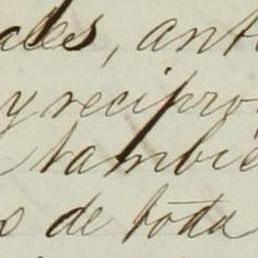 ales, ant
y recipro
tambie
s de toda